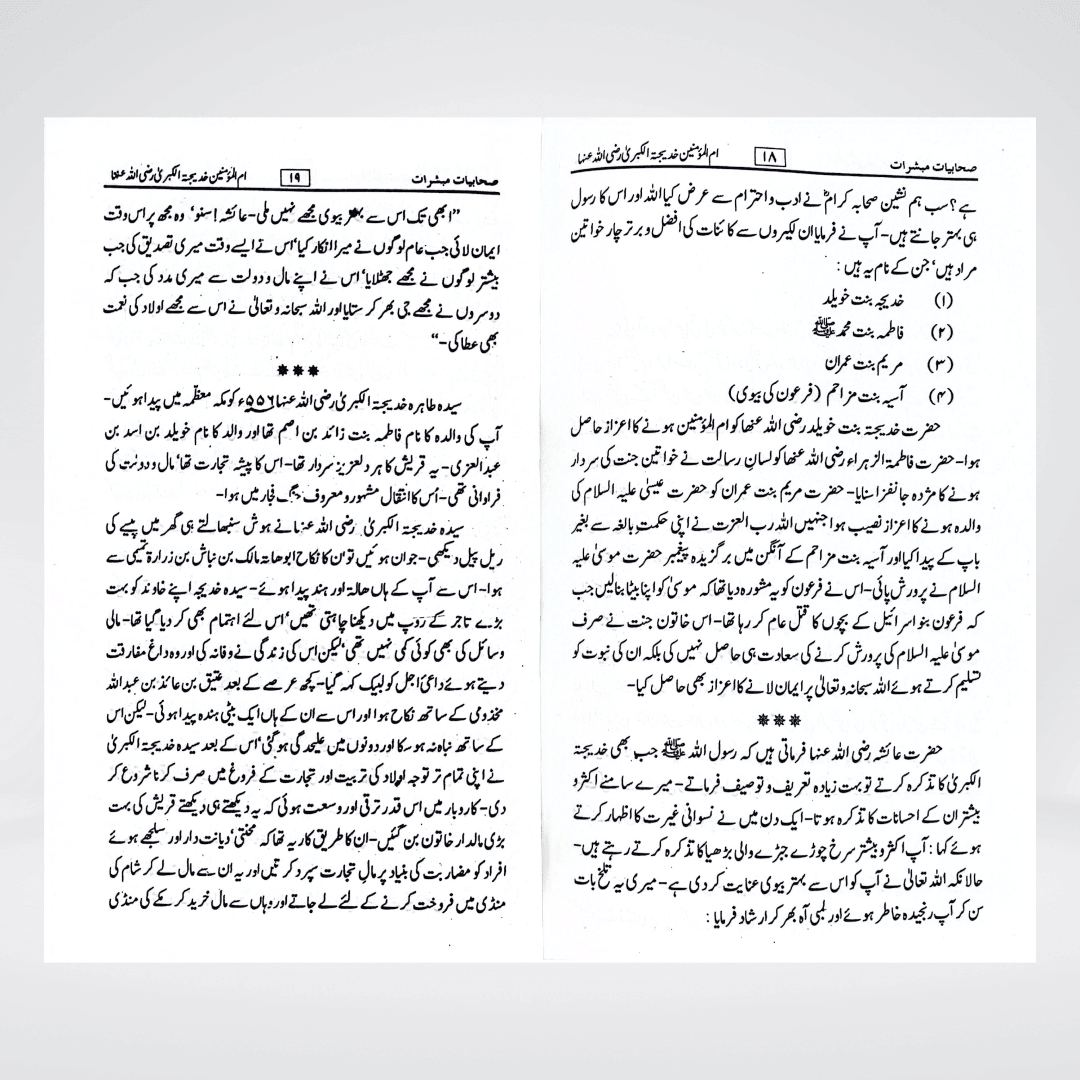 صحابیات مبشرات ۱۸ ام المؤمنین خدیجۃ الکبریٰ رضی اللہ عنہا
ہے؟ سب ہم نشین صحابہ کرامؓ نے ادب و احترام سے عرض کیا اللہ اور اس کا رسول
ہی بہتر جانتے ہیں۔ آپ نے فرمایا ان لکیروں سے کائنات کی افضل و برتر چار خواتین
مراد ہیں‘ جن کے نام یہ ہیں :
(۱) خدیجہ بنت خویلد
(۲) فاطمہ بنت محمد ﷺ
(۳) مریم بنت عمران
(۴) آسیہ بنت مزاحم (فرعون کی بیوی)
حضرت خدیجہ بنت خویلد رضی اللہ عنھا کو ام المؤمنین ہونے کا اعزاز حاصل
ہوا۔ حضرت فاطمۃ الزہراء رضی اللہ عنھا کو لسانِ رسالت نے خواتین جنت کی سردار
ہونے کا مژدہ جانفزا سنایا۔ حضرت مریم بنت عمران کو حضرت عیسیٰ علیہ السلام کی
والدہ ہونے کا اعزاز نصیب ہوا جنہیں اللہ رب العزت نے اپنی حکمتِ بالغہ سے بغیر
باپ کے پیدا کیا اور آسیہ بنت مزاحم کے آنگن میں برگزیدہ پیغمبر حضرت موسیٰ علیہ
السلام نے پرورش پائی۔ اس نے فرعون کو یہ مشورہ دیا تھا کہ موسیٰ کو اپنا بیٹا بنالیں جب
کہ فرعون بنو اسرائیل کے بچوں کا قتل عام کر رہا تھا۔ اس خاتون جنت نے صرف
موسیٰ علیہ السلام کی پرورش کرنے کی سعادت ہی حاصل نہیں کی بلکہ ان کی نبوت کو
تسلیم کرتے ہوئے اللہ سبحانہ و تعالیٰ پر ایمان لانے کا اعزاز بھی حاصل کیا۔
***
حضرت عائشہ رضی اللہ عنھا فرماتی ہیں کہ رسول اللہ ﷺ جب بھی خدیجۃ
الکبریٰ کا تذکرہ کرتے تو بہت زیادہ تعریف و توصیف فرماتے۔ میرے سامنے اکثر و
بیشتر ان کے احسانات کا تذکرہ ہوتا۔ ایک دن میں نے نسوانی غیرت کا اظہار کرتے
ہوئے کہا : آپ اکثر و بیشتر سرخ چوڑے جبڑے والی بڑھیا کا تذکرہ کرتے رہتے ہیں۔
حالانکہ اللہ تعالیٰ نے آپ کو اس سے بہتر بیوی عنایت کردی ہے۔ میری یہ تلخ بات
سن کر آپ رنجیدہ خاطر ہوئے اور لمبی آہ بھر کر ارشاد فرمایا :
صحابیات مبشرات ۱۹ ام المؤمنین خدیجۃ الکبریٰ رضی اللہ عنھا
”ابھی تک اس سے بہتر بیوی مجھے نہیں ملی۔ عائشہ! سنو‘ وہ مجھ پر اس وقت
ایمان لائی جب عام لوگوں نے میرا انکار کیا‘ اس نے ایسے وقت میری تصدیق کی جب
بیشتر لوگوں نے مجھے جھٹلایا‘ اس نے اپنے مال و دولت سے میری مدد کی جب کہ
دوسروں نے مجھے جی بھر کر ستایا اور اللہ سبحانہ و تعالیٰ نے اس سے مجھے اولاد کی نعمت
بھی عطا کی۔“
***
سیدہ طاہرہ خدیجۃ الکبریٰ رضی اللہ عنھا ۵۵۶ء کو مکہ معظمہ میں پیدا ہوئیں۔
آپ کی والدہ کا نام فاطمہ بنت زائد بن اصم تھا اور والد کا نام خویلد بن اسد بن
عبد العزی۔ یہ قریش کا ہر دلعزیز سردار تھا۔ اس کا پیشہ تجارت تھا‘ مال و دولت کی
فراوانی تھی۔ اُس کا انتقال مشہور و معروف جنگ فجار میں ہوا۔
سیدہ خدیجۃ الکبریٰ رضی اللہ عنہا نے ہوش سنبھالتے ہی گھر میں پیسے کی
ریل پیل دیکھی۔ جوان ہوئیں تو ان کا نکاح ابوھالہ مالک بن نباش بن زرارۃ تمیمی سے
ہوا۔ اس سے آپ کے ہاں ھالۃ اور ہند پیدا ہوئے۔ سیدہ خدیجہ اپنے خاوند کو بہت
بڑے تاجر کے روپ میں دیکھنا چاہتی تھیں‘ اس لئے اہتمام بھی کر دیا گیا تھا۔ مالی
وسائل کی بھی کوئی کمی نہیں تھی‘ لیکن اس کی زندگی نے وفا نہ کی اور وہ داغ مفارقت
دیتے ہوئے داعیٔ اجل کو لبیک کہہ گیا۔ کچھ عرصے کے بعد عتیق بن عائذ بن عبد اللہ
مخذومی کے ساتھ نکاح ہوا اور اس سے ان کے ہاں ایک بیٹی ہندہ پیدا ہوئی۔ لیکن اس
کے ساتھ نباہ نہ ہو سکا اور دونوں میں علیحدگی ہوگئی‘ اس کے بعد سیدہ خدیجۃ الکبریٰ
نے اپنی تمام تر توجہ اولاد کی تربیت اور تجارت کے فروغ میں صرف کرنا شروع کر
دی۔ کاروبار میں اس قدر ترقی اور وسعت ہوئی کہ یہ دیکھتے ہی دیکھتے قریش کی بہت
بڑی مالدار خاتون بن گئیں۔ ان کا طریق کار یہ تھا کہ محنتی‘ دیانت دار اور سلجھے ہوئے
افراد کو مضاربت کی بنیاد پر مالِ تجارت سپرد کرتیں اور یہ ان سے مال لے کر شام کی
منڈی میں فروخت کرنے کے لئے لے جاتے اور وہاں سے مال خرید کر مکے کی منڈی